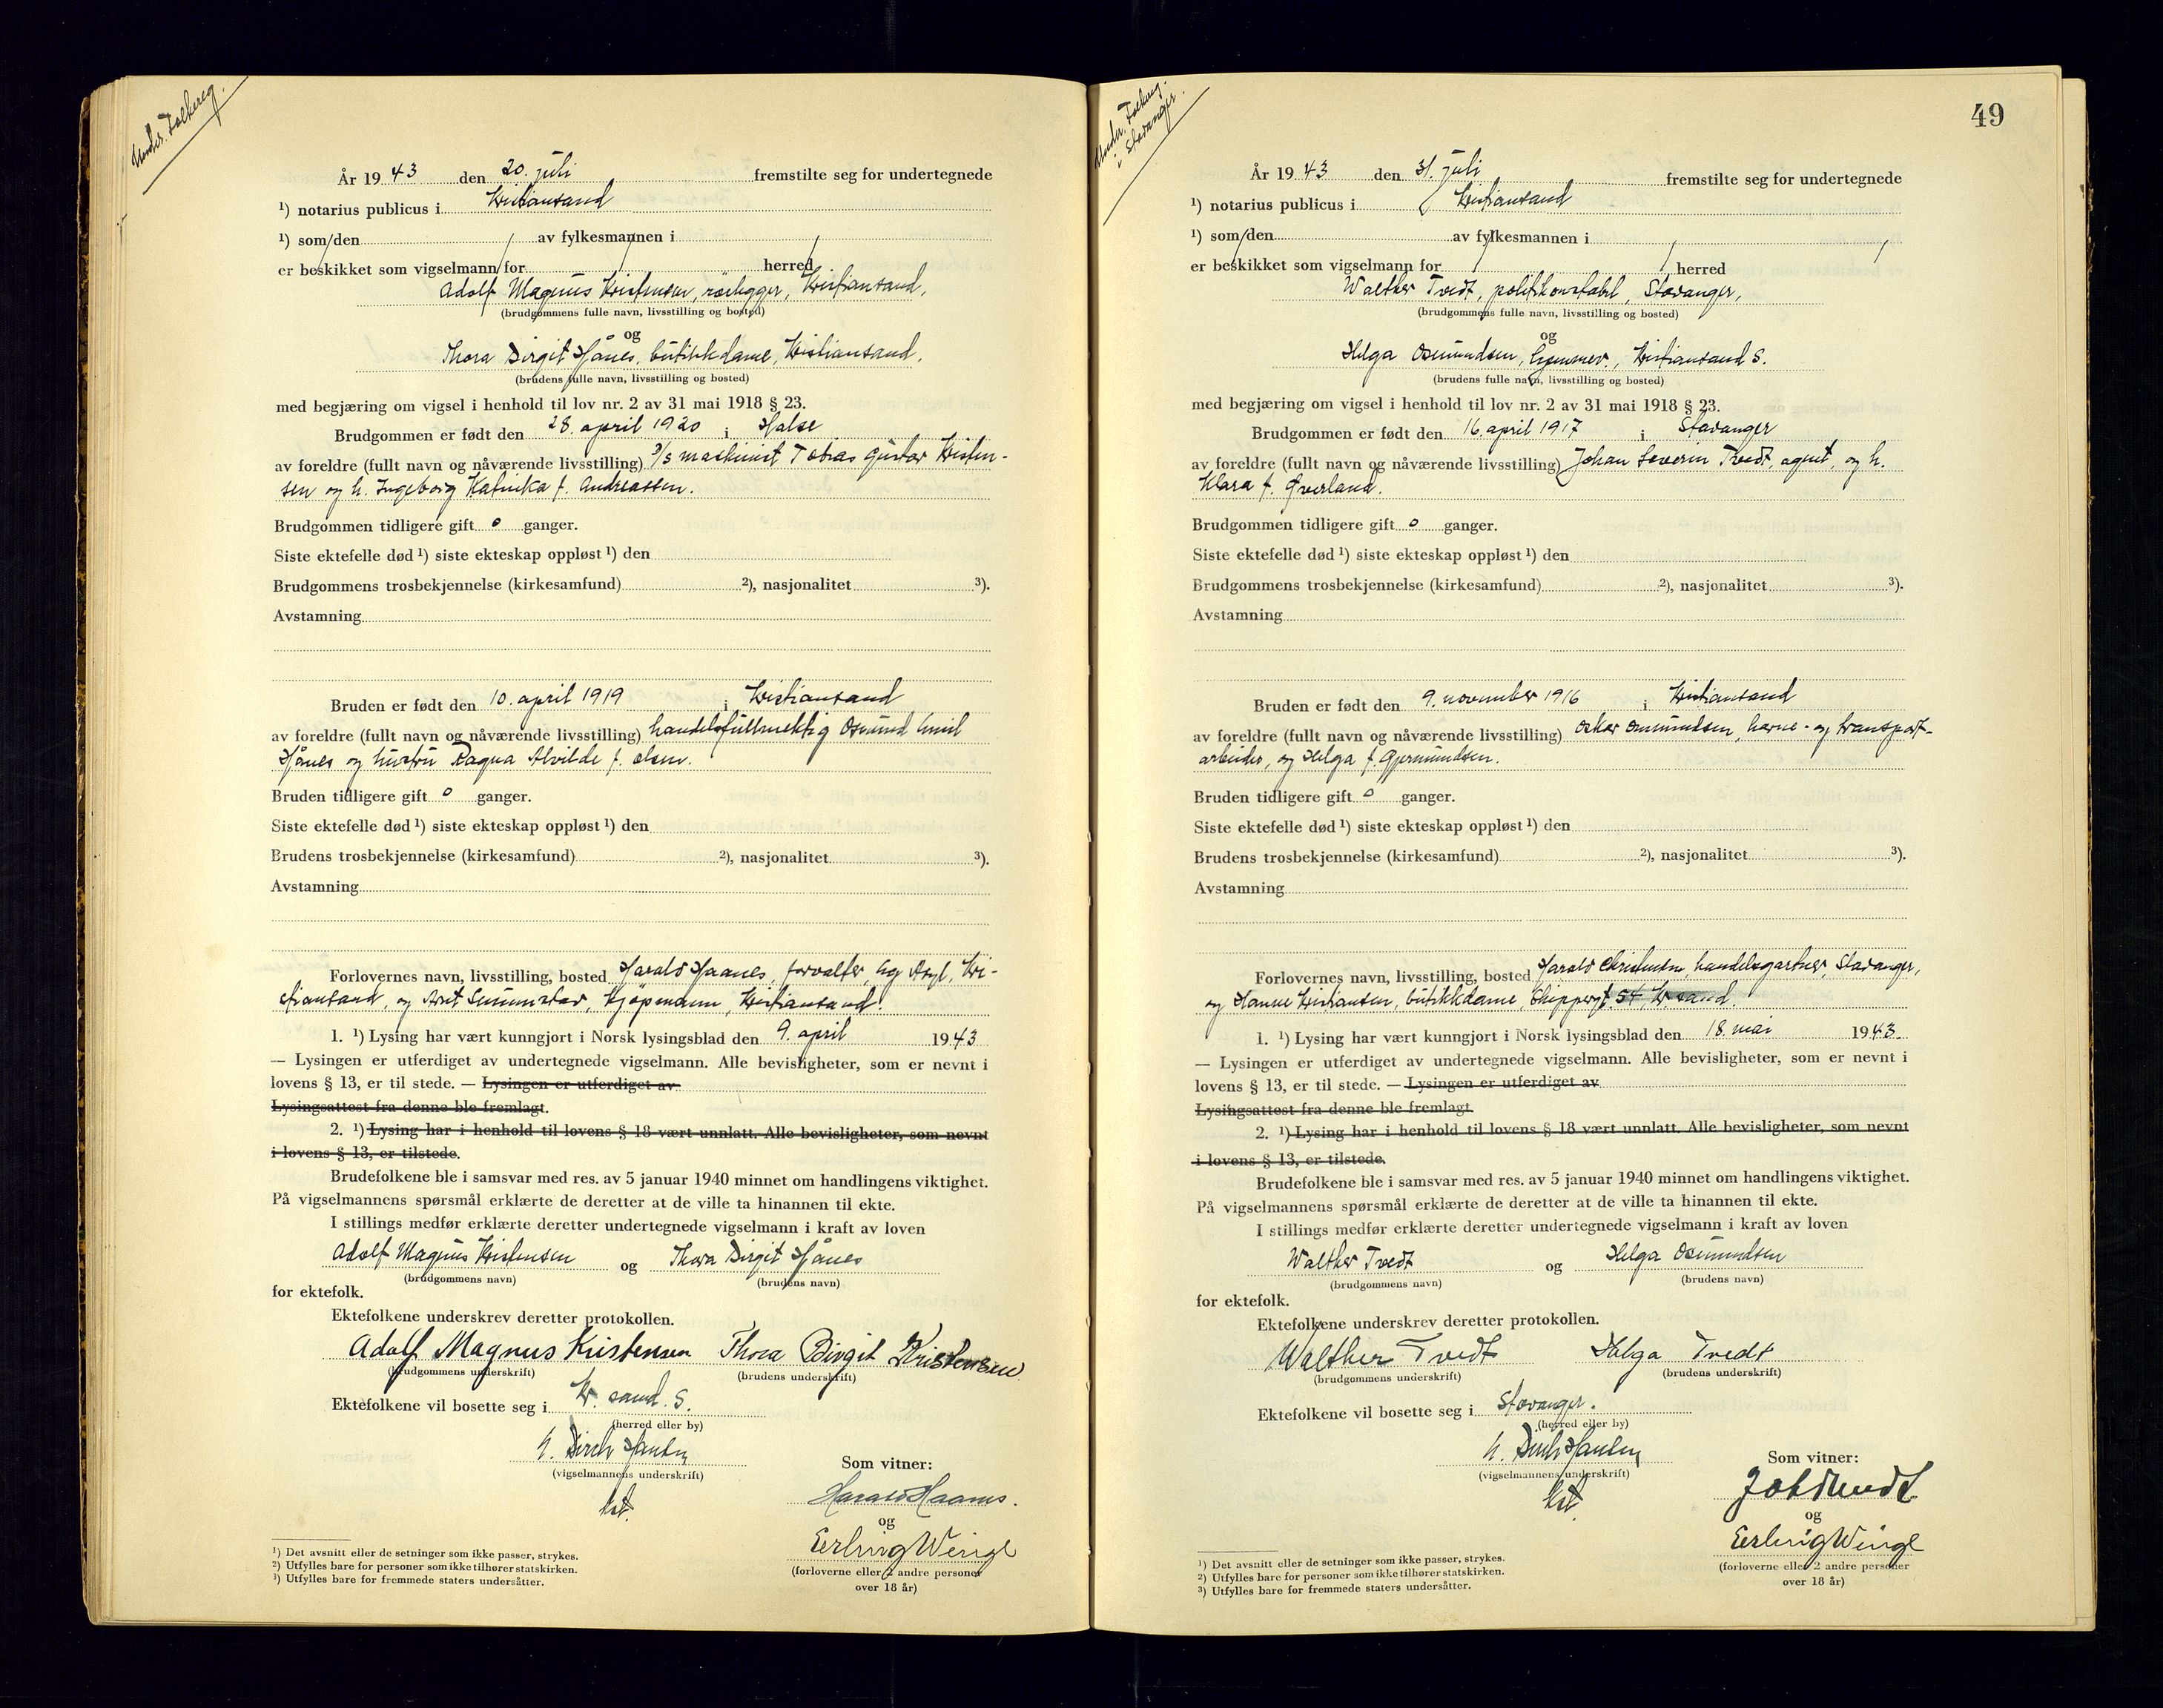 Underr. Folkereg.
År 1943 den 20. juli fremstilte seg for undertegnede
¹) notarius publicus i Kristiansand
¹) som den av fylkesmannen i
er beskikket som vigselmann for herred
Adolf Magnus Kristensen, rørlegger, Kristiansand,
(brudgommens fulle navn, livsstilling og bosted)
og
Thora Birgit Hånes, butikkdame, Kristiansand.
(brudens fulle navn, livsstilling og bosted)
med begjæring om vigsel i henhold til lov nr. 2 av 31 mai 1918 § 23.
Brudgommen er født den 28. april 1920 i Halse
av foreldre (fullt navn og nåværende livsstilling) D/S maskinist Tobias Gustav Kristen-
sen og h. Ingeborg Katinka f. Andreassen.
Brudgommen tidligere gift 0 ganger.
Siste ektefelle død ¹) siste ekteskap oppløst ¹) den
Brudgommens trosbekjennelse (kirkesamfund) ²), nasjonalitet ³).
Avstamning
Bruden er født den 10. april 1919 i Kristiansand
av foreldre (fullt navn og nåværende livsstilling) handelsfullmektig Osmund Emil
Hånes og hustru Ragna Alvilde f. Olsen.
Bruden tidligere gift 0 ganger.
Siste ektefelle død ¹) siste ekteskap oppløst ¹) den
Brudens trosbekjennelse (kirkesamfund) ²), nasjonalitet ³).
Avstamning
Forlovernes navn, livsstilling, bosted Harald Haanes, forvalter, Eg Asyl, Kri-
stiansand, og Arnt kjøpmann, Kristiansand.
1. ¹) Lysing har vært kunngjort i Norsk lysingsblad den 9. april 1943
— Lysingen er utferdiget av undertegnede vigselmann. Alle bevisligheter, som er nevnt i
lovens § 13, er til stede. — Lysingen er utferdiget av
Lysingsattest fra denne ble fremlagt.
2. ¹) Lysing har i henhold til lovens § 18 vært unnlatt. Alle bevisligheter, som nevnt
i lovens § 13, er tilstede.
Brudefolkene ble i samsvar med res. av 5 januar 1940 minnet om handlingens viktighet.
På vigselmannens spørsmål erklærte de deretter at de ville ta hinannen til ekte.
I stillings medfør erklærte deretter undertegnede vigselmann i kraft av loven
Adolf Magnus Kristensen og Thora Birgit Hånes
(brudgommens navn) (brudens navn)
for ektefolk.
Ektefolkene underskrev deretter protokollen.
Adolf Magnus Kristensen Thora Birgit Kristensen
(brudgommens underskrift) (brudens underskrift)
Ektefolkene vil bosette seg i Kr. sand. S.
(herred eller by)
N. Birch Hansen
(vigselmannens underskrift)
Som vitner:
Harald Haanes.
og
Erling Winge
(forloverne eller 2 andre personer
over 18 år)
¹) Det avsnitt eller de setninger som ikke passer, strykes.
²) Utfylles bare for personer som ikke tilhører statskirken.
³) Utfylles bare for fremmede staters undersåtter.
49
Underr. Folkereg.
i Stavanger.
År 1943 den 31. juli fremstilte seg for undertegnede
¹) notarius publicus i Kristiansand
¹) som den av fylkesmannen i
er beskikket som vigselmann for herred
Walther Tvedt, politikonstabel, Stavanger,
(brudgommens fulle navn, livsstilling og bosted)
og
Helga Osmundsen, hjemmev., Kristiansand S.
(brudens fulle navn, livsstilling og bosted)
med begjæring om vigsel i henhold til lov nr. 2 av 31 mai 1918 § 23.
Brudgommen er født den 16. april 1917 i Stavanger
av foreldre (fullt navn og nåværende livsstilling) Johan Severin Tvedt, agent, og h.
Klara f. Øverland.
Brudgommen tidligere gift 0 ganger.
Siste ektefelle død ¹) siste ekteskap oppløst ¹) den
Brudgommens trosbekjennelse (kirkesamfund) ²), nasjonalitet ³).
Avstamning
Bruden er født den 9. november 1916 i Kristiansand
av foreldre (fullt navn og nåværende livsstilling) Oskar Osmundsen, havne- og transport-
arbeider, og Helga f. Gjermundsen.
Bruden tidligere gift 0 ganger.
Siste ektefelle død ¹) siste ekteskap oppløst ¹) den
Brudens trosbekjennelse (kirkesamfund) ²), nasjonalitet ³).
Avstamning
Forlovernes navn, livsstilling, bosted Harald Christensen, handelsgartner, Stavanger,
og Hanne Kristiansen, butikkdame, Skippergt. 54 Kr.sand.
1. ¹) Lysing har vært kunngjort i Norsk lysingsblad den 18. mai 1943.
— Lysingen er utferdiget av undertegnede vigselmann. Alle bevisligheter, som er nevnt i
lovens § 13, er til stede. — Lysingen er utferdiget av
Lysingsattest fra denne ble fremlagt.
2. ¹) Lysing har i henhold til lovens § 18 vært unnlatt. Alle bevisligheter, som nevnt
i lovens § 13, er tilstede.
Brudefolkene ble i samsvar med res. av 5 januar 1940 minnet om handlingens viktighet.
På vigselmannens spørsmål erklærte de deretter at de ville ta hinannen til ekte.
I stillings medfør erklærte deretter undertegnede vigselmann i kraft av loven
Walther Tvedt og Helga Osmundsen
(brudgommens navn) (brudens navn)
for ektefolk.
Ektefolkene underskrev deretter protokollen.
Walther Tvedt Helga Tvedt
(brudgommens underskrift) (brudens underskrift)
Ektefolkene vil bosette seg i Stavanger.
(herred eller by)
N. Birch Hansen
(vigselmannens underskrift)
Som vitner:
og
Erling Winge
(forloverne eller 2 andre personer
over 18 år)
¹) Det avsnitt eller de setninger som ikke passer, strykes.
²) Utfylles bare for personer som ikke tilhører statskirken.
³) Utfylles bare for fremmede staters undersåtter.